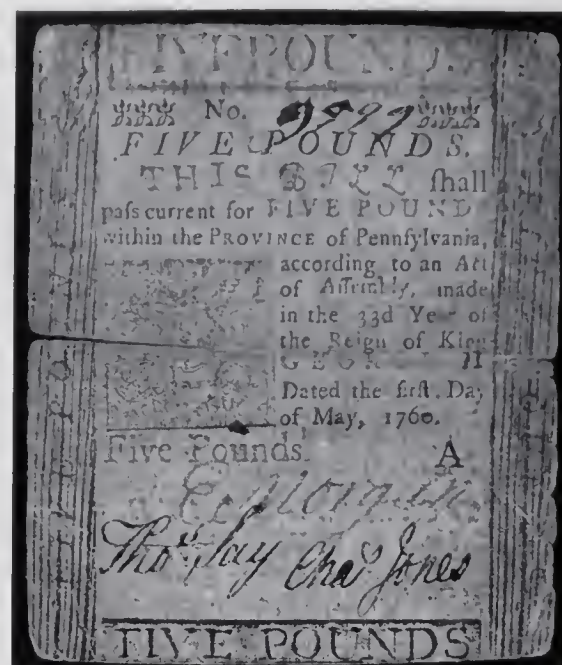 FIVE POUND.
No. 9799
FIVE POUNDS.
THIS BILL ſhall
paſs current for FIVE POUND
within the PROVINCE of Pennſylvania,
according to an Act
of Aſſembly, made
in the 33d Year of
the Reign of King
GEORGE II
Dated the firſt Day
of May, 1760.
Five Pounds. A
E Morgan
Thoˢ Say Chaˢ Jones
FIVE POUNDS